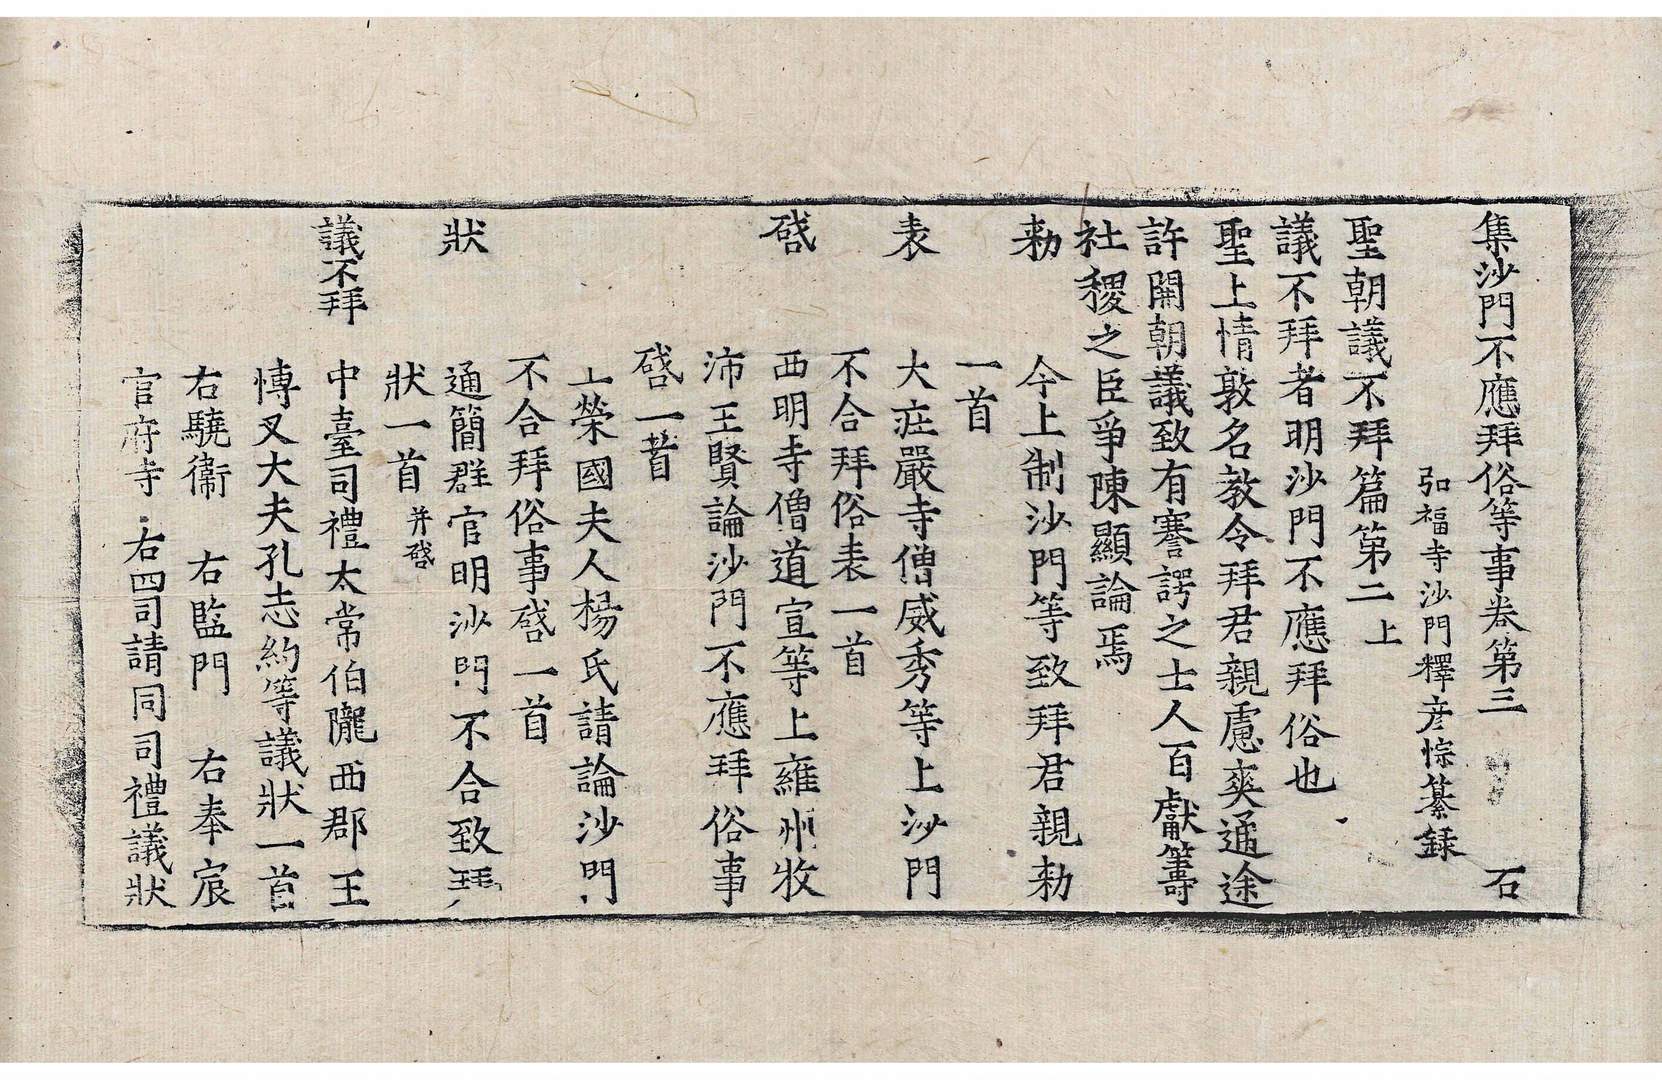 集沙門不應拜俗等事卷第三 石
弘福寺沙門釋彦悰纂録
聖朝議不拜篇第二上
議不拜者明沙門不應拜俗也
聖上情敦名教令拜君親慮爽通途
許開朝議致有謇諤之士人百獻籌
社稷之臣爭陳顯論焉
勑 今上制沙門等致拜君親勑
一首
表 大莊嚴寺僧威秀等上沙門
不合拜俗表一首
啓 西明寺僧道宣等上雍州牧
沛王賢論沙門不應拜俗事
啓一首
上榮國夫人楊氏請論沙門
不合拜俗事啓一首
狀 通簡群官明沙門不合致拜
狀一首 并啓
議不拜 中臺司禮太常伯隴西郡王
博叉大夫孔志約等議狀一首
右驍衛 右監門 右奉宸
官府寺 右四司請同司禮議狀